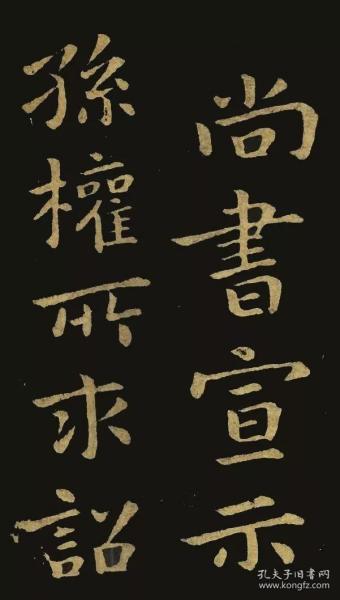 尚書宣示
孫權所求詔
孔夫子旧书网
www.kongfz.com